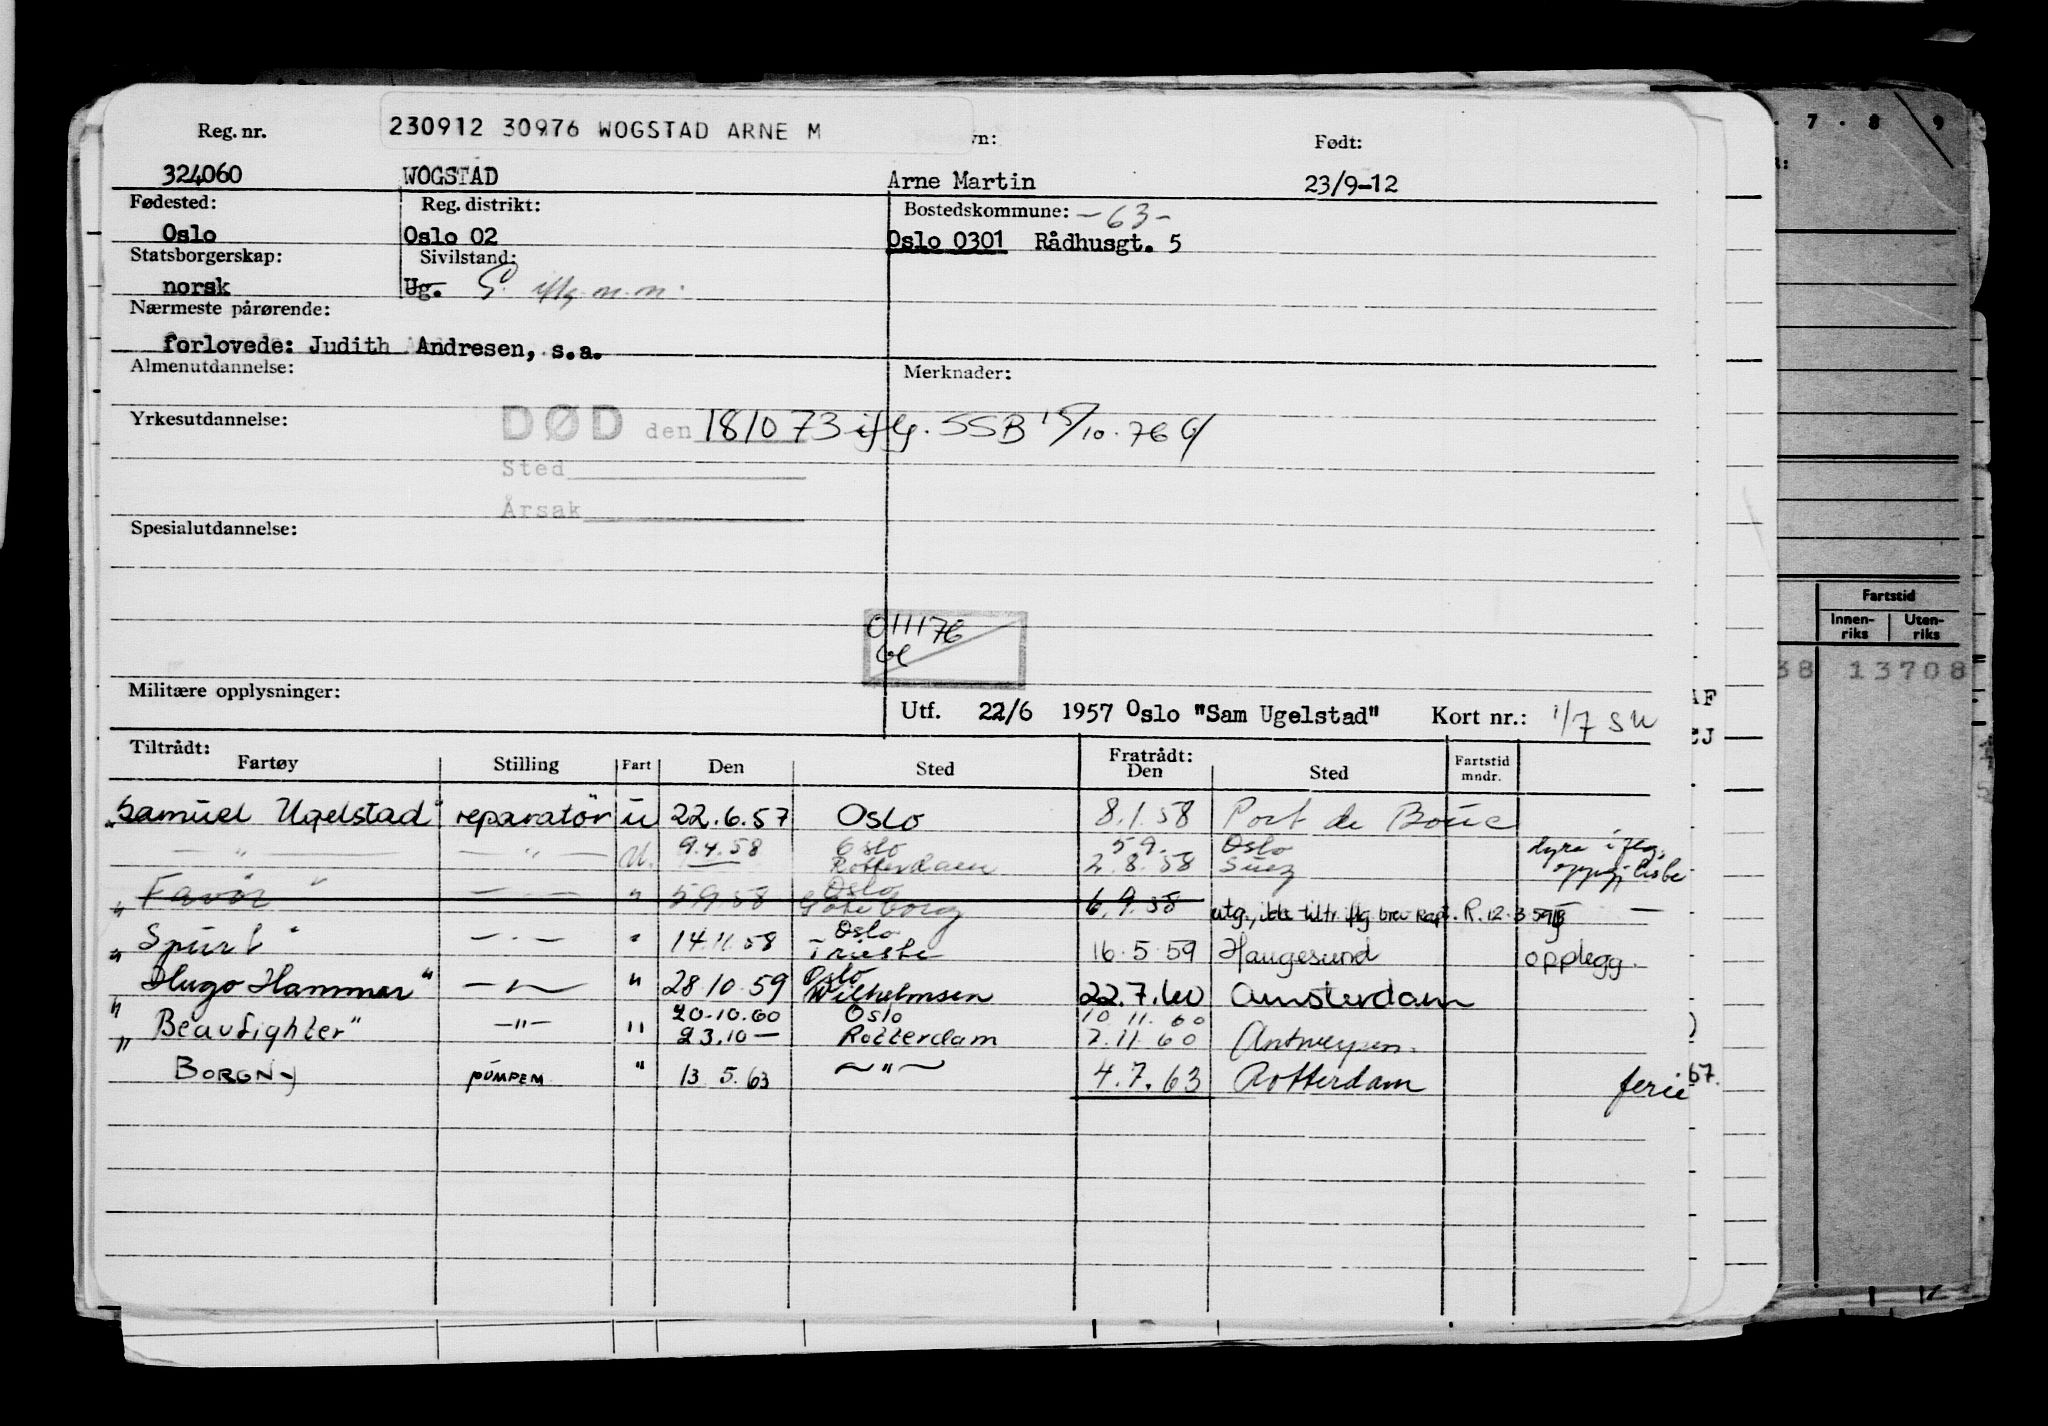 230912 30976 WOGSTAD ARNE M
Reg. nr. vn: Født:
324060 WOGSTAD Arne Martin 23/9-12
Fødested: Reg. distrikt: Bostedskommune: -63-
Oslo Oslo 02 Oslo 0301 Rådhusgt. 5
Statsborgerskap: Sivilstand:
norsk Ug. G. iflg. m.m.
Nærmeste pårørende:
forlovede: Judith Andresen, s.a.
Almenutdannelse: Merknader:
Yrkesutdannelse: DØD den 181073 iflg. SSB 15/10.76
Sted
Årsak
Spesialutdannelse:
011176
Militære opplysninger:
Utf. 22/6 1957 Oslo "Sam Ugelstad" Kort nr.: 1/7 SU
Tiltrådt: Fratrådt:
Fartøy Stilling Fart Den Sted Den Sted Fartstid mndr.
"Samuel Ugelstad" reparatör u 22.6.57 Oslo 8.1.58 Port de Bouc
— " — — " — U. 9.4.58 Oslo 5.9. Oslo
Rotterdam 2.8.58 Suez
"Favör" — " — " 5.9.58 Oslo Göteborg 6.9.58 utg., ikke tiltr. iflg brev R. 12.3.59
"Spurt" — " — " 14.11.58 Oslo Trieste 16.5.59 Haugesund opplegg.
"Hugo Hammar" — " — " 28.10.59 Oslo Wilhelmsen 22.7.60 Amsterdam
"Beaufighter" — " — " 20.10.60 Oslo 10.11.60
23.10 — Rotterdam 7.11.60 Antwerpen.
BORGNY PUMPEM " 13 5.63 — " — 4.7.63 Rotterdam ferie
7 . 8 . 9
Fartstid
Innenriks Utenriks
38 13708
AF
67.